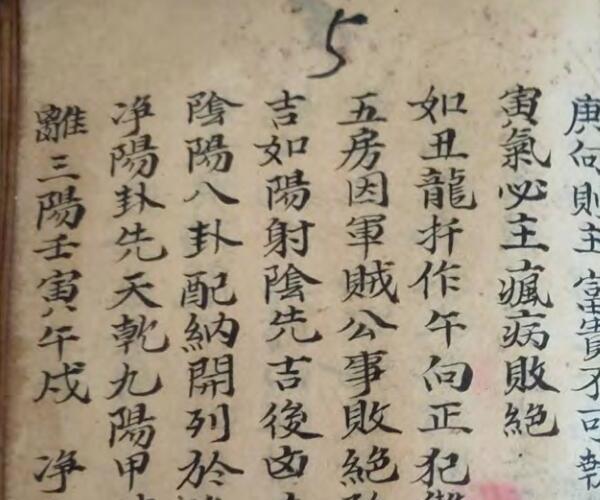 5
庚向則主富貴不可
寅氣必主瘋病敗絕
如丑龍扦作午向正犯
五房因軍賊公事敗絕
吉如陽射陰先吉後凶
陰陽八卦配納開列於
净陽卦先天乾九陽甲
離三陽壬寅午戍 净